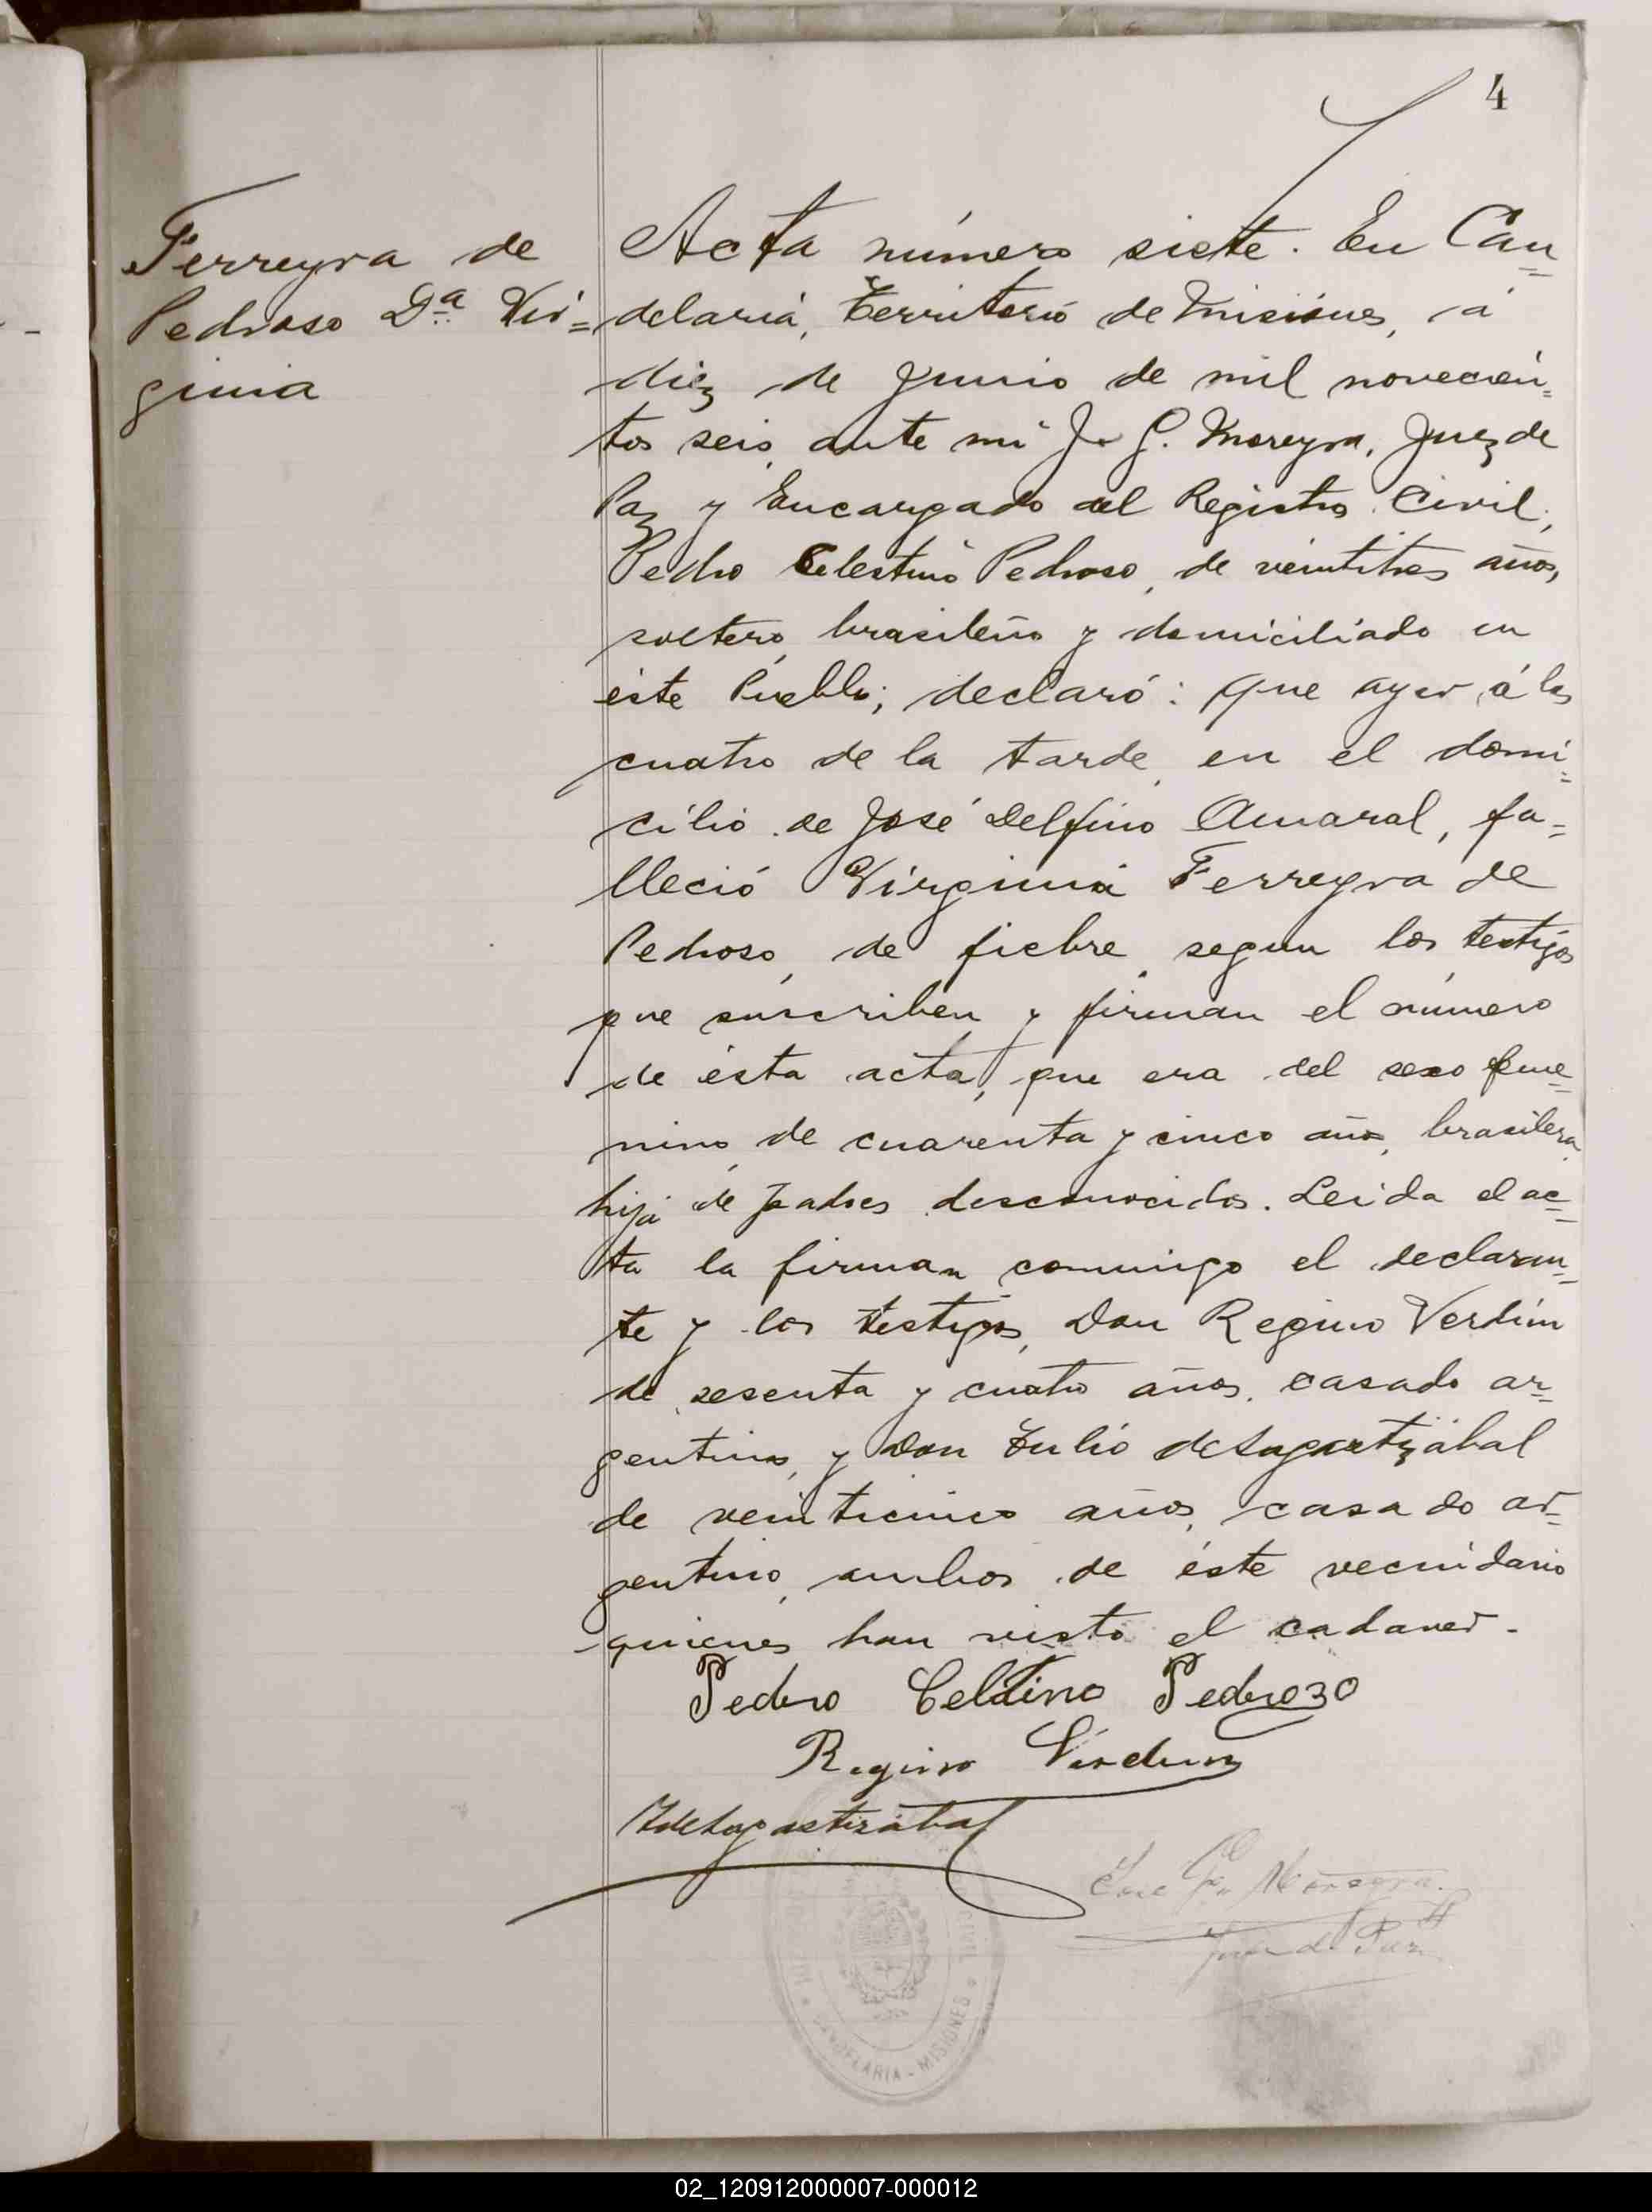 4
Ferreyra de
Pedroso Dª Vir=
ginia
Acta número siete. En Can=
delaria, Territorio de Misiones, á
diez de Junio de mil novecien=
tos seis, ante mi J. G. Moreyra, Juez de
Paz y Encargado del Registro Civil,
Pedro Celestino Pedroso, de veintitres años,
soltero, brasileño y domiciliado en
éste Pueblo; declaró: Que ayer á las
cuatro de la tarde, en el domi=
cilio de José Delfino Amaral, fa=
lleció Virginia Ferreyra de
Pedroso, de fiebre, segun los testigos
que suscriben y firman el número
de ésta acta, que era del sexo feme=
nino, de cuarenta y cinco años, brasilera,
hija de padres desconocidos. Leida el ac=
ta la firman conmigo el declaran=
te y los testigos, Don Regino Verdún
de sesenta y cuatro años, casado ar=
gentino, y Don Julio deLagartizábal
de veinticinco años, casado ar=
gentino, ambos de éste vecindario
quienes han visto el cadaver.
Pedro Celstino Pedrozo
Regino Verdun
JdeLagastizabal
José G. Moreyra
Juez de Paz
CIVIL
CANDELARIA - MISIONES
02_120912000007-000012